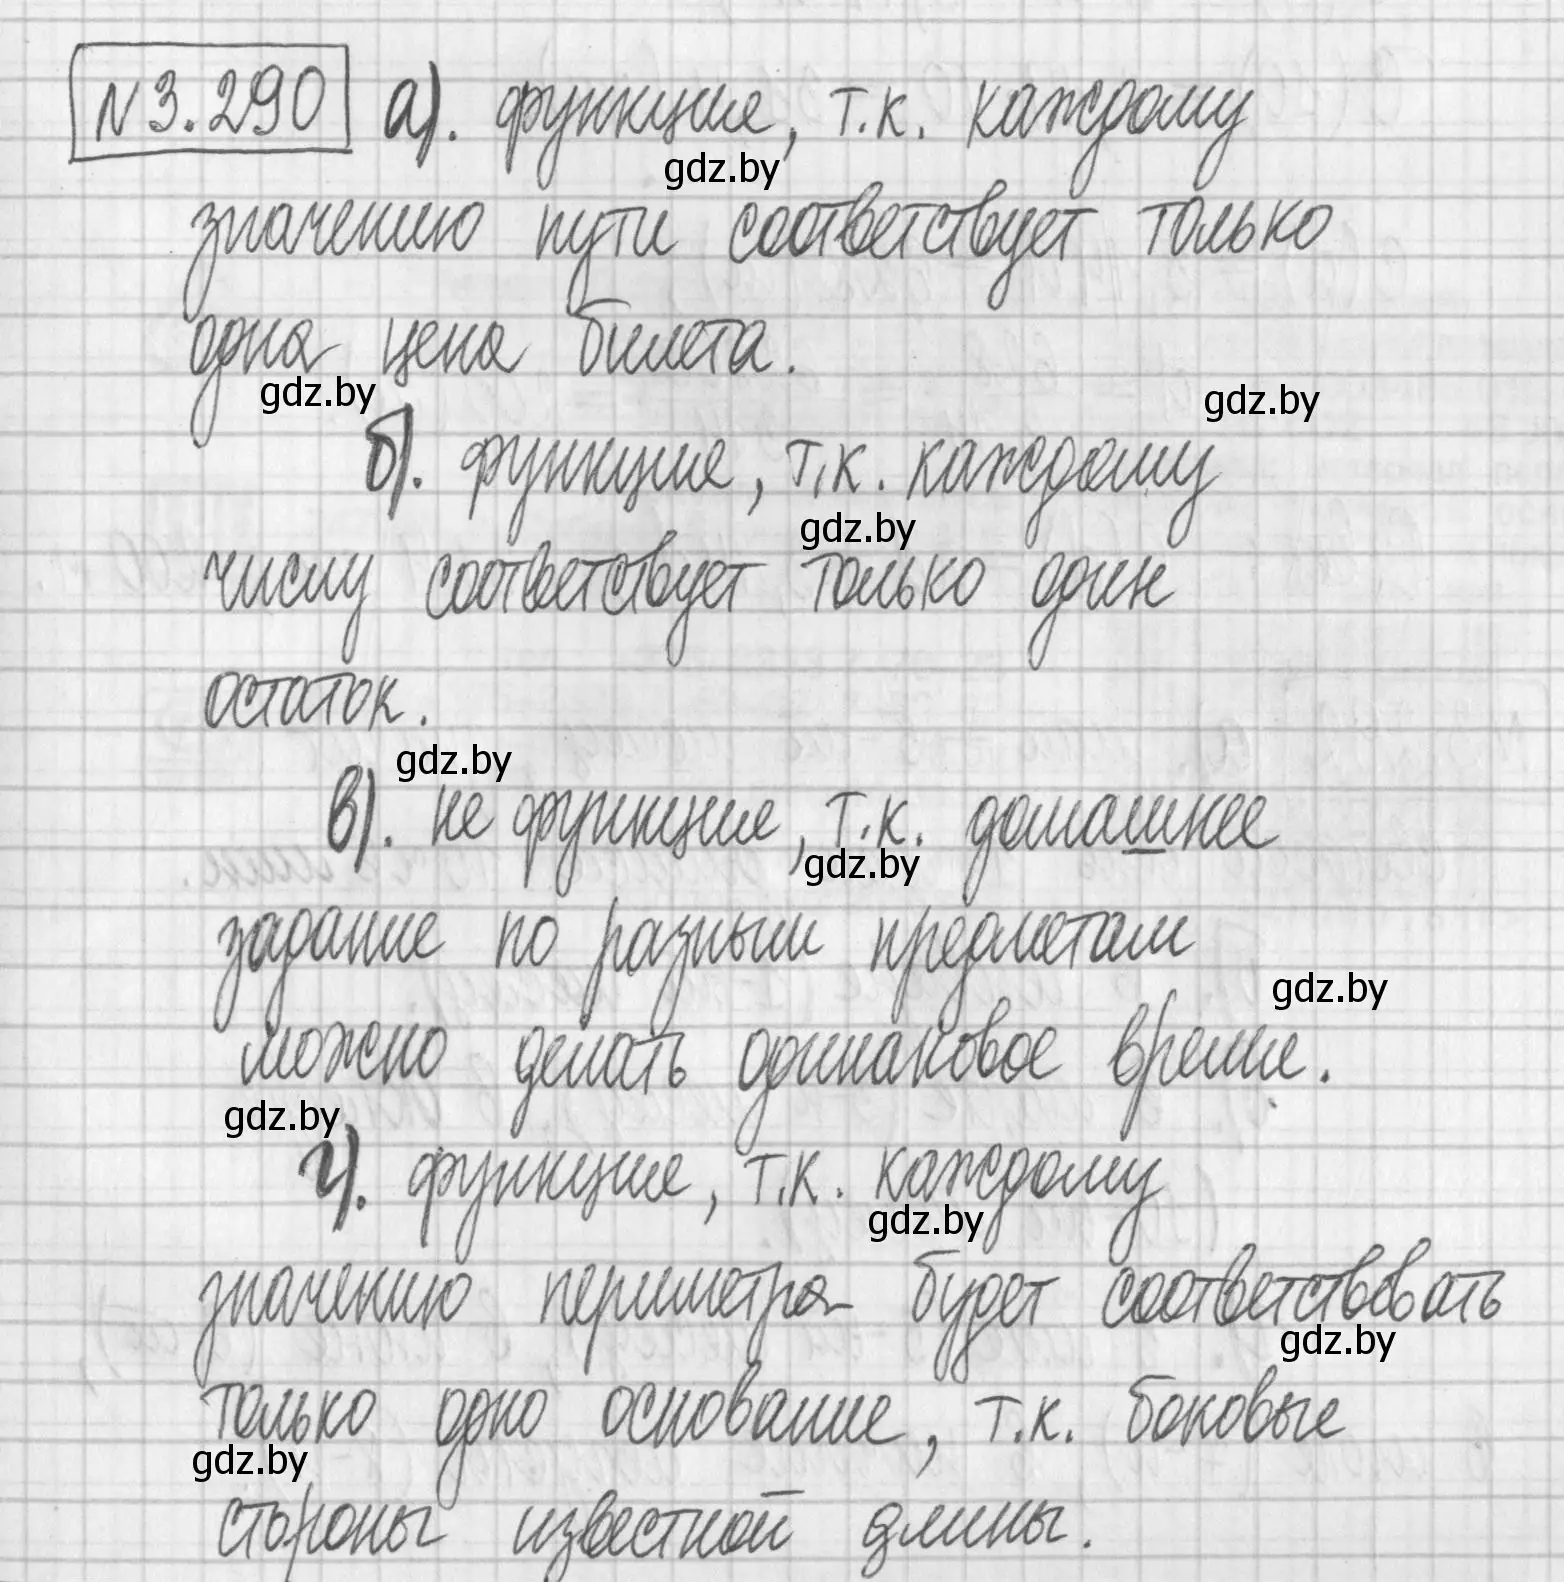 №3.290 а). функция, т.к. каждому
gdz.by
значению пути соответствует только
одна цена билета.
gdz.by gdz.by
б). функция, т.к. каждому
gdz.by
числу соответствует только один
остаток.
gdz.by
в). не функция, т.к. домашнее
gdz.by
задание по разным предметам
gdz.by
можно делать одинаковое время.
gdz.by
г). функция, т.к. каждому
gdz.by
значению периметра будет соответствовать
gdz.by
только одно основание, т.к. боковые
gdz.by
стороны известной длины.